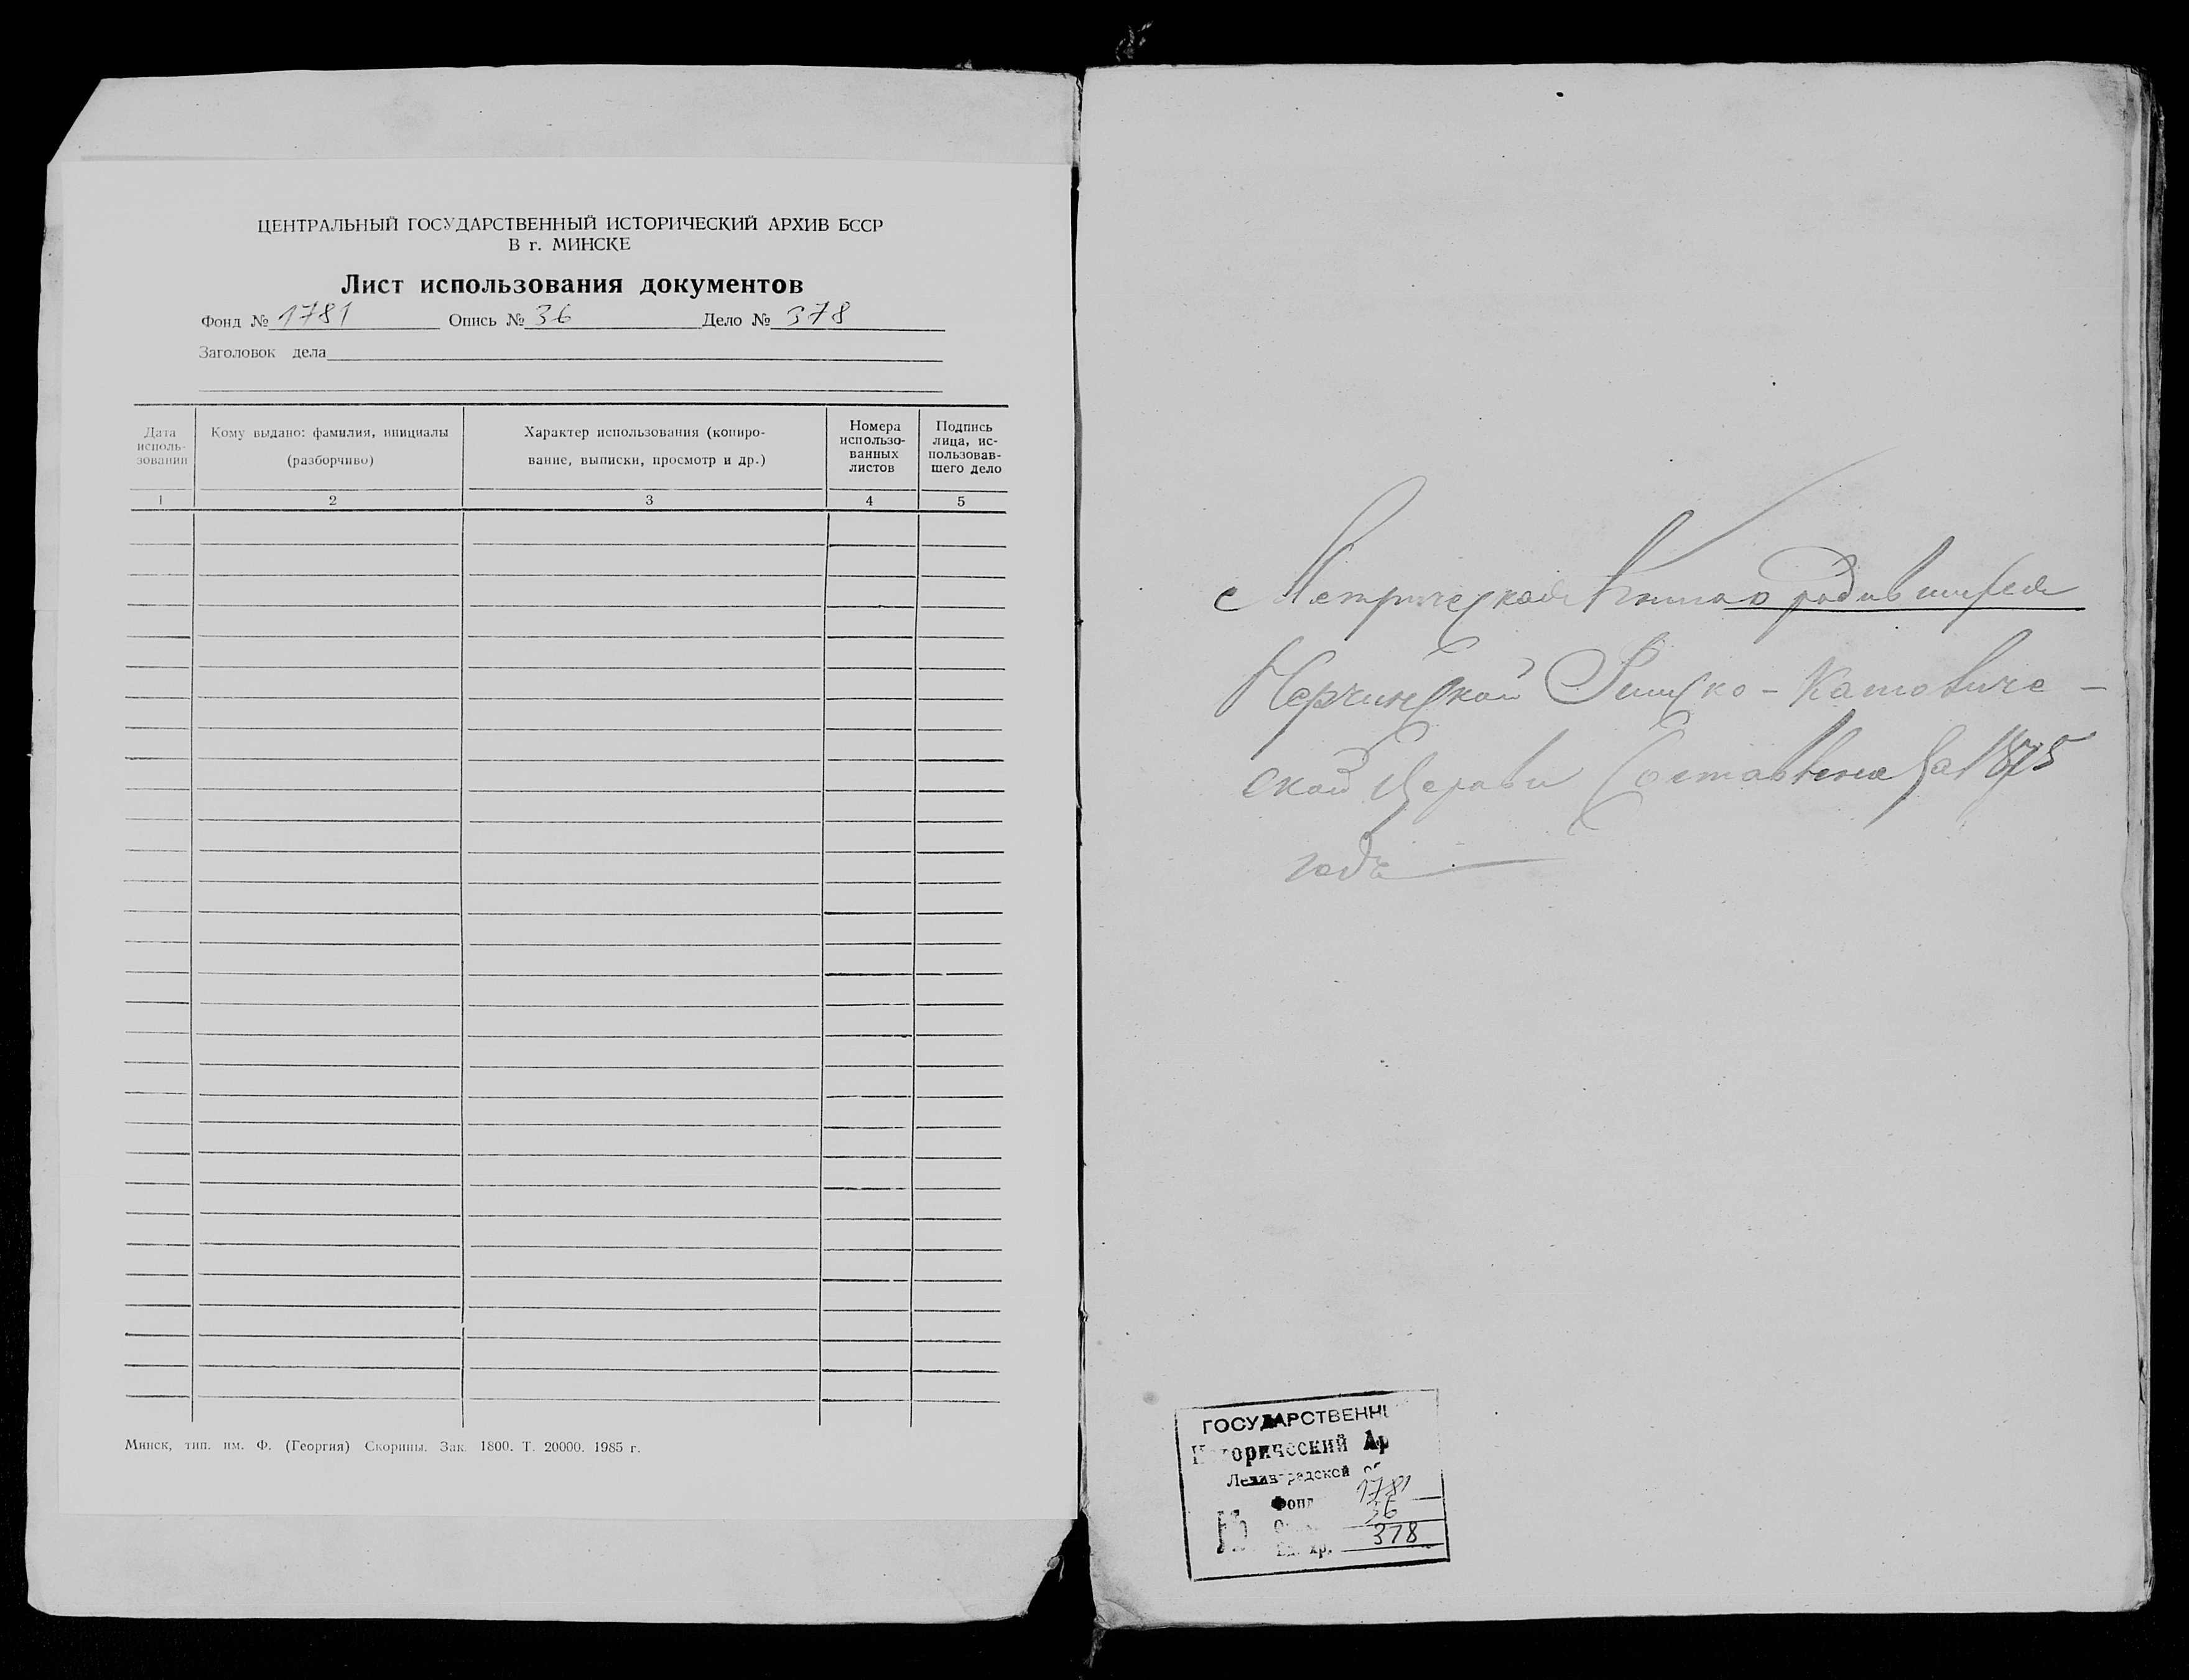 ЦЕНТРАЛЬНЫЙ ГОСУДАРСТВЕННЫЙ ИСТОРИЧЕСКИЙ АРХИВ БССР
В г. МИНСКЕ
Лист использования документов
Фонд № 1781 Опись № 36 Дело № 378
Заголовок дела
Дата исполь-
зования
Кому выдано: фамилия, инициалы
(разборчиво)
Характер использования (копиро-
вание, выписки, просмотр и др.)
Номера
использо-
ванных
листов
Подпись
лица, ис-
пользовав-
шего дело
1 2 3 4 5
Минск, тип. им. Ф. (Георгия) Скорины. Зак. 1800. Т. 20000. 1985 г.
Метрическая Книга о родившихся
Нерчинской Римско-Католиче-
ской Церкви Составлена за 1875
годъ
ГОСУДАРСТВЕНН
Исторический Ар
Ленинградской об
Фонд 1781
36
Ед. хр. 378